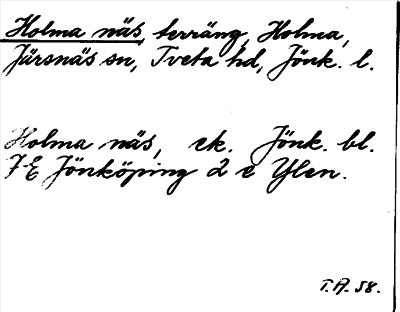 Holma näs, terräng, Holma,
Järsnäs sn, Tveta hd, Jönk. l.
Holma näs, ek. Jönk. bl.
7 E Jönköping 2 e Ylen.
T.A. 58.